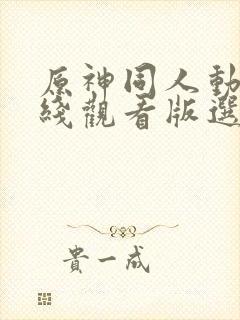 原神同人動
綫觀看版選
貴一成